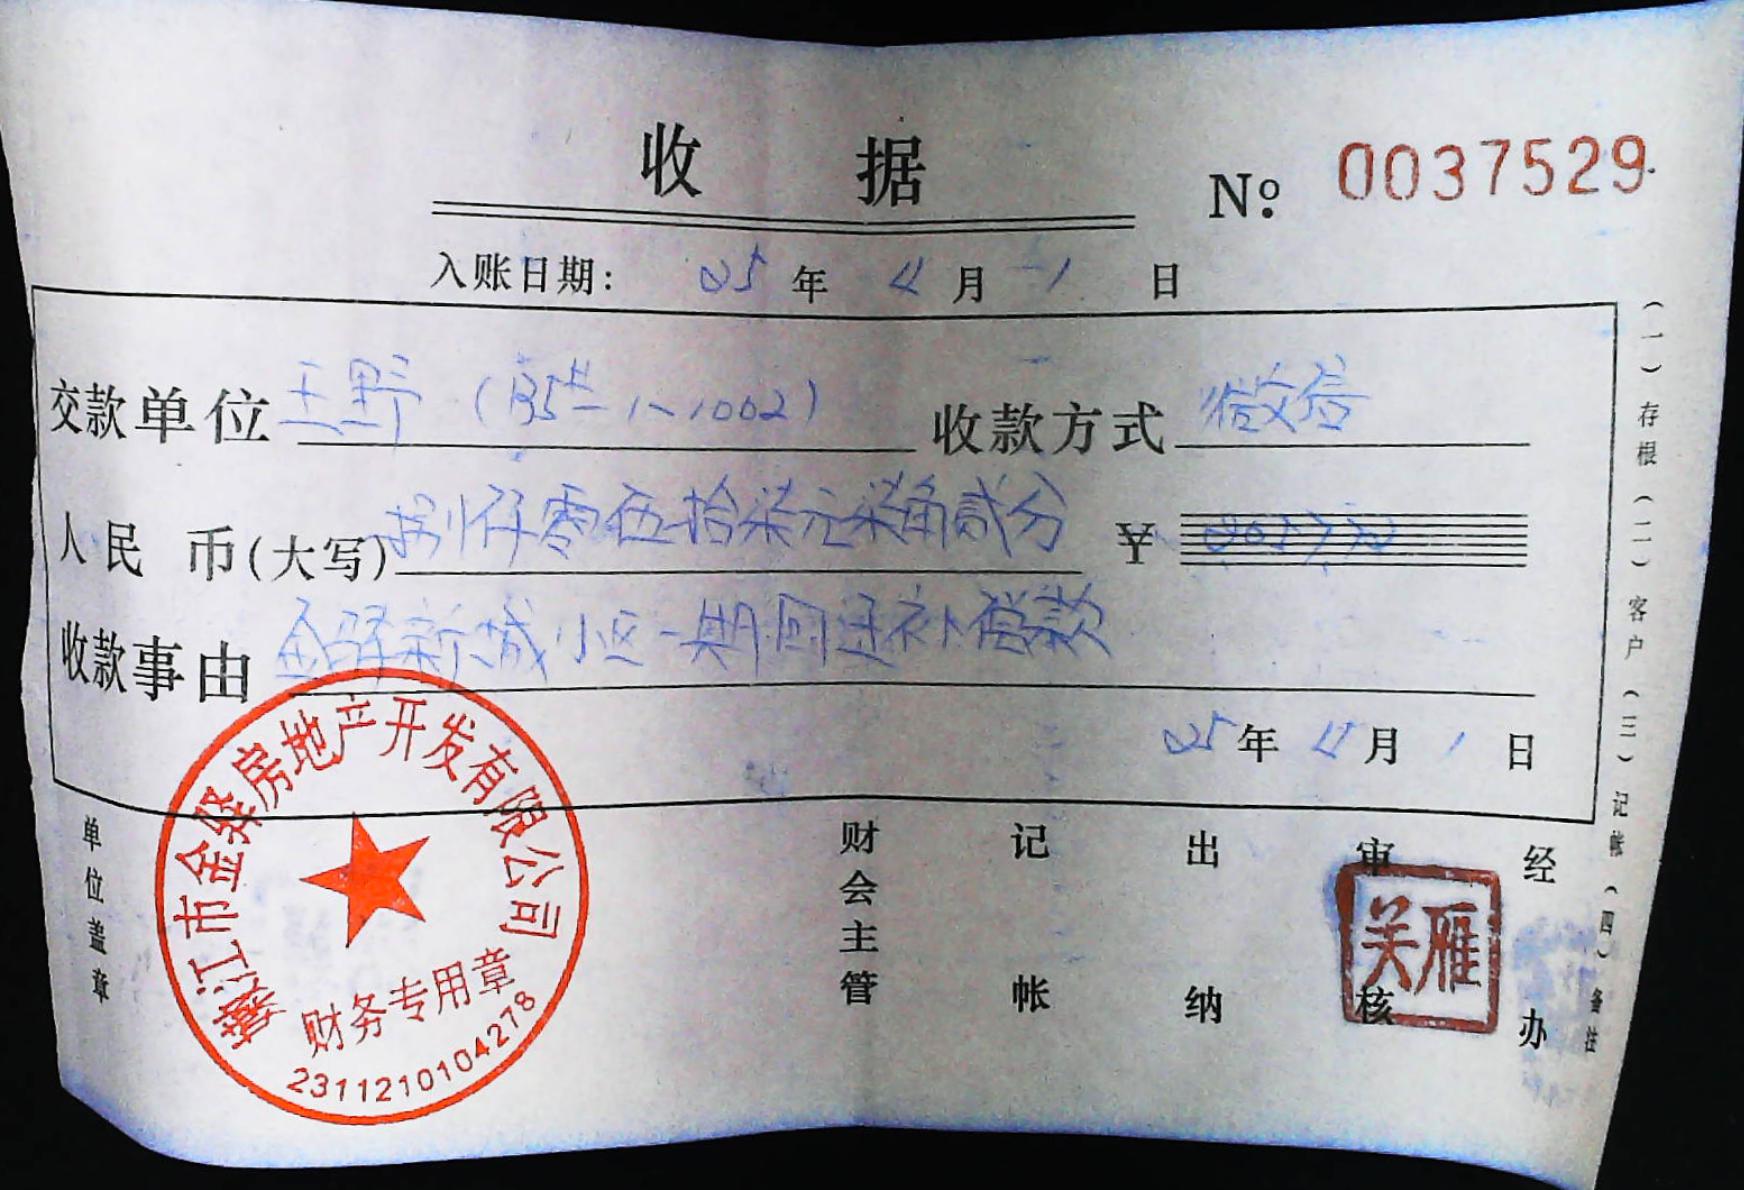 收 据
No: 0037529
入账日期: 25 年 11 月 1 日
交款单位 王野 (B5#-1-1002) 收款方式 微信
人民币(大写) 捌仟零伍拾柒元柒角贰分 ¥ 8057.72
收款事由 金驿新城小区一期回迁补偿款
25 年 11 月 1 日
单位盖章 财会主管 记帐 出纳 审核 经办
嫩江市金驿房地产开发有限公司
财务专用章
2311210104278
关雁
(一)存根(二)客户(三)记帐(四)备注